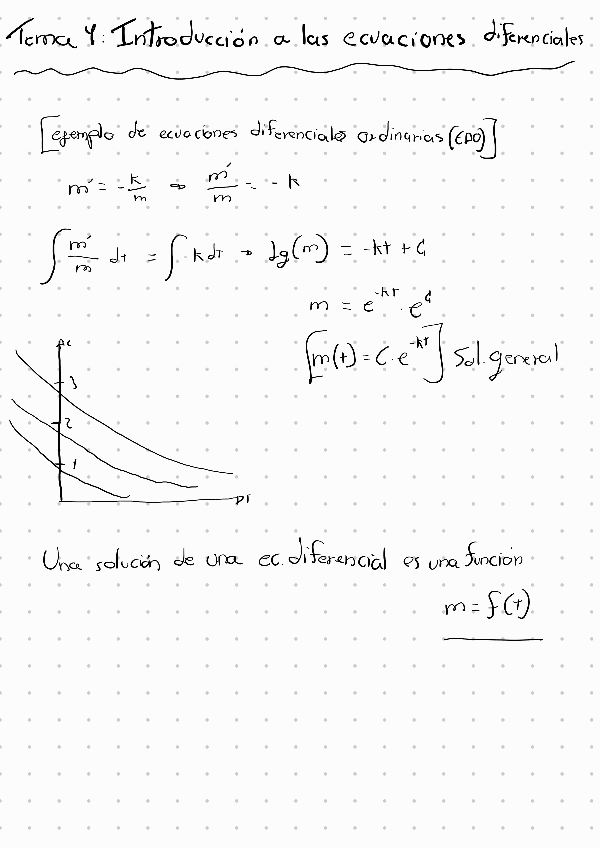 Tema 4: Introducción a las ecuaciones diferenciales
[ejemplo de ecuaciones diferenciales ordinarias (EDO)]
m' = -k/m → m'/m = -k
∫ m'/m dt = ∫ k dt → lg(m) = -kt + C₁
m = e^-kt · e^C₁
[m(t) = C · e^-kt] Sol. general
3
2
1
Una solución de una ec. diferencial es una función
m = f(t)